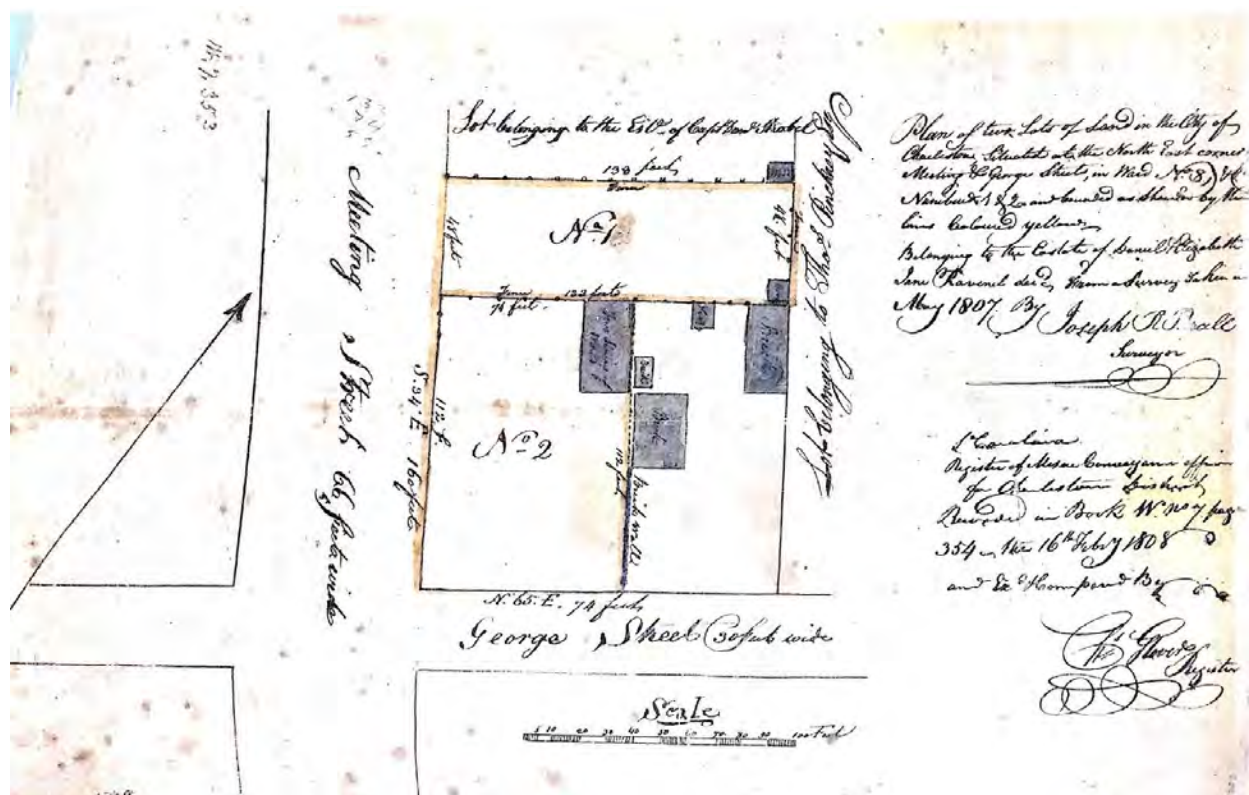 Lot belonging to the Est. of Capt. Danl. Strobel
138 feet
Fence
48 feet
No. 1
48 feet
Fence 133 feet
74 feet
Kitchen
Brick
S. 34 E. 160 feet
112 ft.
No. 2
112 feet
Brick wall
Meeting Street 66 feet wide
Lot belonging to Thos. Pinckney
N. 65. E. 74 feet
George Street 30 feet wide
Scale
5 10 20 30 40 50 60 70 80 100 Feet
Plan of two Lots of Land in the City of
Charleston Situated at the North East corner
Meeting & George Street, in Ward No. 3,
Numbered 1 & 2 and bounded as shewn by the
lines Coloured yellow
Belonging to the Estate of Daniel & Elizabeth
Jane Ravenel decd. from a Survey taken in
May 1807. By
Joseph
Surveyor
So. Carolina
Register of Mesne Conveyance office
for Charleston District
Recorded in Book W. no 7 page
354 the 16th Feby 1808
and Exd. & Compared By
Glover
Register